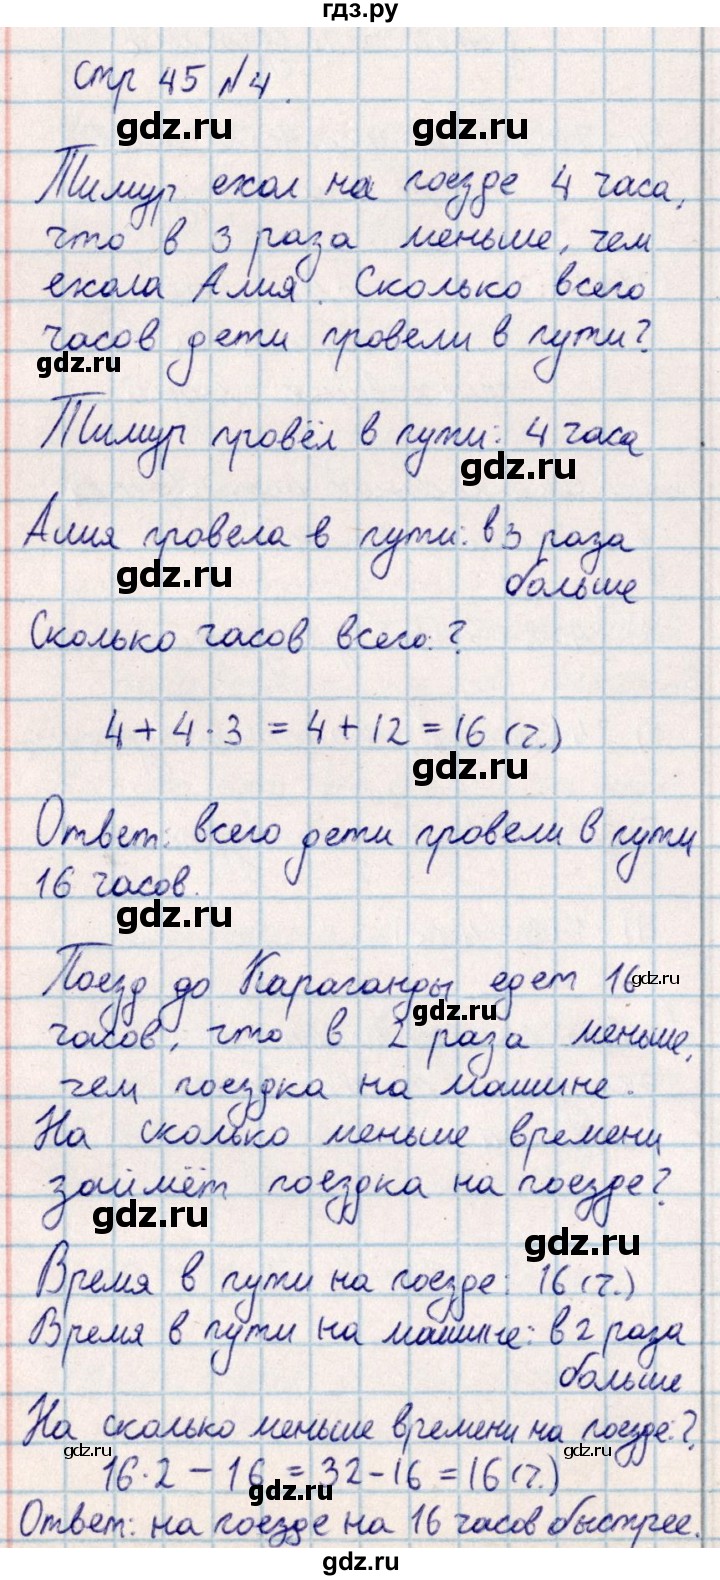 гдз.ру
стр 45 №4.
gdz.ru gdz.ru
Тимур ехал на поезде 4 часа,
что в 3 раза меньше, чем
ехала Алия. Сколько всего
часов дети провели в пути?
gdz.ru
Тимур провёл в пути: 4 часа
gdz.ru
Алия провела в пути: в 3 раза
больше
gdz.ru
Сколько часов всего: ?
4 + 4 · 3 = 4 + 12 = 16 (ч.)
gdz.ru
Ответ: всего дети провели в пути
16 часов.
gdz.ru
Поезд до Караганды едет 16
gdz.ru
gdz.ru
часов, что в 2 раза меньше,
чем поездка на машине.
На сколько меньше времени
займёт поездка на поезде?
gdz.ru
gdz.ru
Время в пути на поезде: 16 (ч.)
Время в пути на машине: в 2 раза
больше
На сколько меньше времени на поезде: ?
gdz.ru gdz.ru
16 · 2 - 16 = 32 - 16 = 16 (ч.)
gdz.ru
Ответ: на поезде на 16 часов быстрее.
gdz.ru